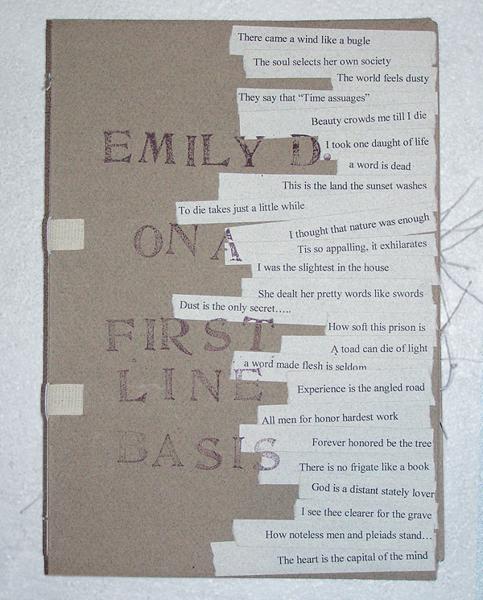 There came a wind like a bugle
The soul selects her own society
The world feels dusty
They say that “Time assuages”
Beauty crowds me till I die
EMILY D.
I took one daught of life
a word is dead
This is the land the sunset washes
To die takes just a little while
ON A
I thought that nature was enough
Tis so appalling, it exhilarates
I was the slightest in the house
She dealt her pretty words like swords
Dust is the only secret.....
FIRST
How soft this prison is
A toad can die of light
a word made flesh is seldom
LINE
Experience is the angled road
All men for honor hardest work
BASIS
Forever honored be the tree
There is no frigate like a book
God is a distant stately lover
I see thee clearer for the grave
How noteless men and pleiads stand...
The heart is the capital of the mind